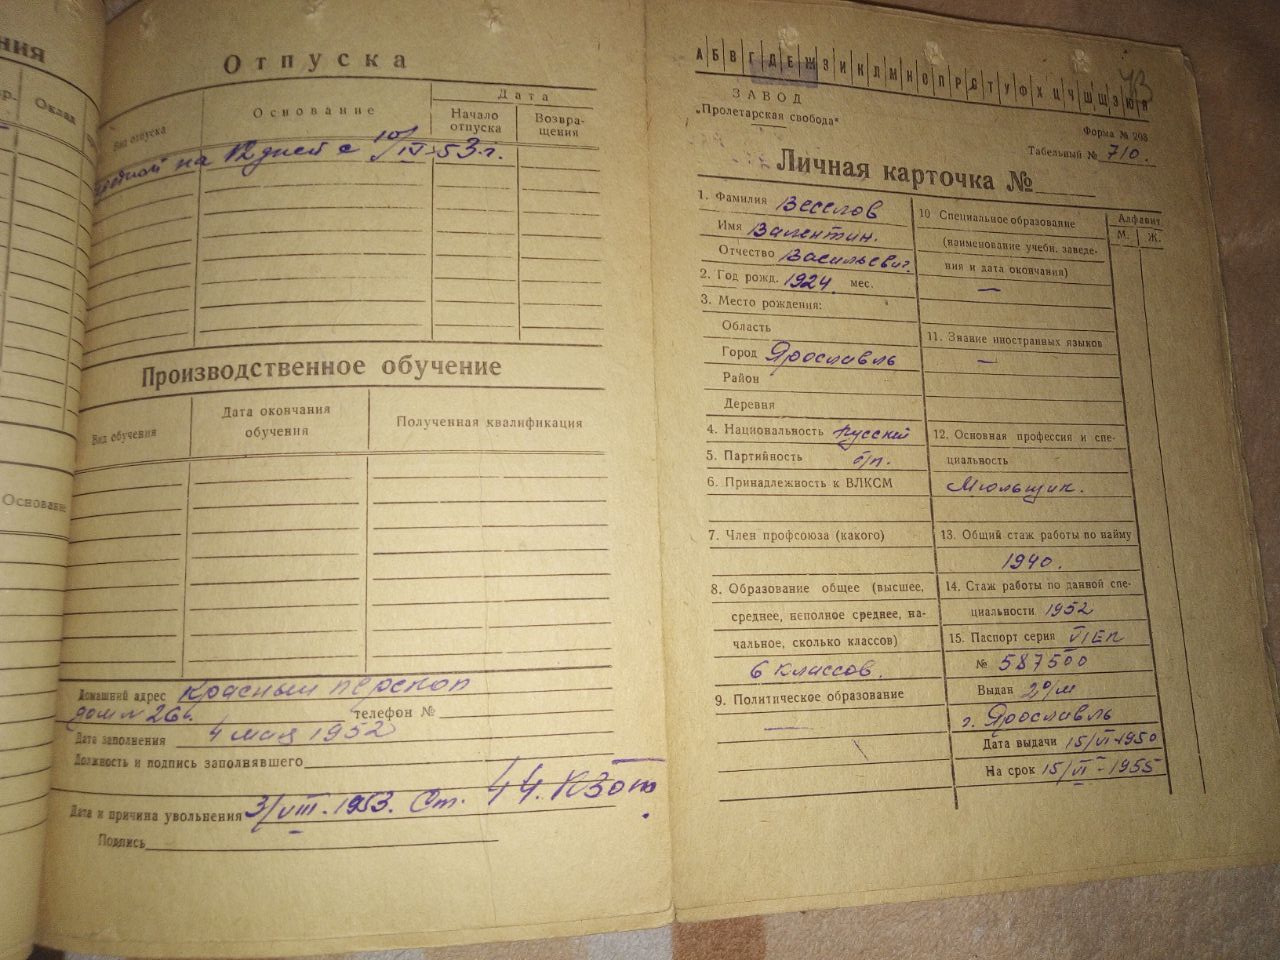 ния
Оклад
Основани
Отпуска
Вид отпуска
Основание
Дата
Начало отпуска
Возвра-
щения
на 12 дней с 10/IV-53 г.
Производственное обучение
Вид обучения
Дата окончания обучения
Полученная квалификация
Домашний адрес Красный перекоп
дом № 26
телефон №
Дата заполнения 4 мая 1952
Должность и подпись заполнявшего
Дата и причина увольнения 3/VIII.1953. Ст. 44. КЗот
Подпись
А Б В Г Д Е Ж З И К Л М Н О П Р С Т У Ф Х Ц Ч Ш Щ Э Ю Я
ЗАВОД
„Пролетарская свобода"
Форма № 203
Табельный № 710.
Личная карточка №
1. Фамилия Веселов
Имя Валентин.
Отчество Васильевич.
2. Год рожд. 1924 мес.
3. Место рождения:
Область
Город Ярославль
Район
Деревня
4. Национальность русский
5. Партийность б/п.
6. Принадлежность к ВЛКСМ
7. Член профсоюза (какого)
8. Образование общее (высшее,
среднее, неполное среднее, на-
чальное, сколько классов)
6 классов.
9. Политическое образование
—
10 Специальное образование
(наименование учебн. заведе-
ния и дата окончания)
—
11. Знание иностранных языков
—
12. Основная профессия и спе-
циальность
Мюльщик.
13. Общий стаж работы по найму
1940.
14. Стаж работы по данной спе-
циальности 1952
15. Паспорт серия
№ 587500
Выдан 2 о/м
г. Ярославль
Дата выдачи 15/VI-1950
На срок 15/VI-1955
Алфавит
М. Ж.